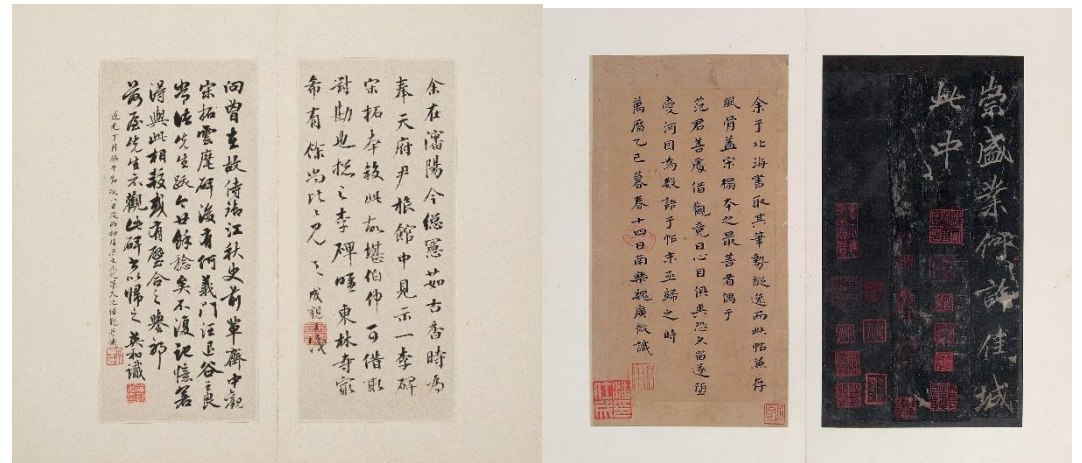 崇盛業何許佳城
此中
余于北海書取其筆勢縱逸而此帖兼存
風骨蓋宋榻本之最善者偶于
范君善處借觀竟日心目俱爽恐久留遂墮
愛河因為數語于帖末亟歸之時
萬曆乙巳暮春十四日南樂魏廣微識
余在瀋陽今總憲茹古香時為
奉天府尹於館中見示一李碑
宋拓本致此故堪伯仲可借取
對勘也總之李碑唯東林寺最
希有餘尚比比見之成親王識
向曾在故侍御江秋史前輩齋中觀
宋拓雲麾碑後有何義門汪退谷王良
常諸先生跋今廿餘稔矣不復記憶若
得與此相較或有璧合之譽耶
先生示觀此碑書以歸之英和識